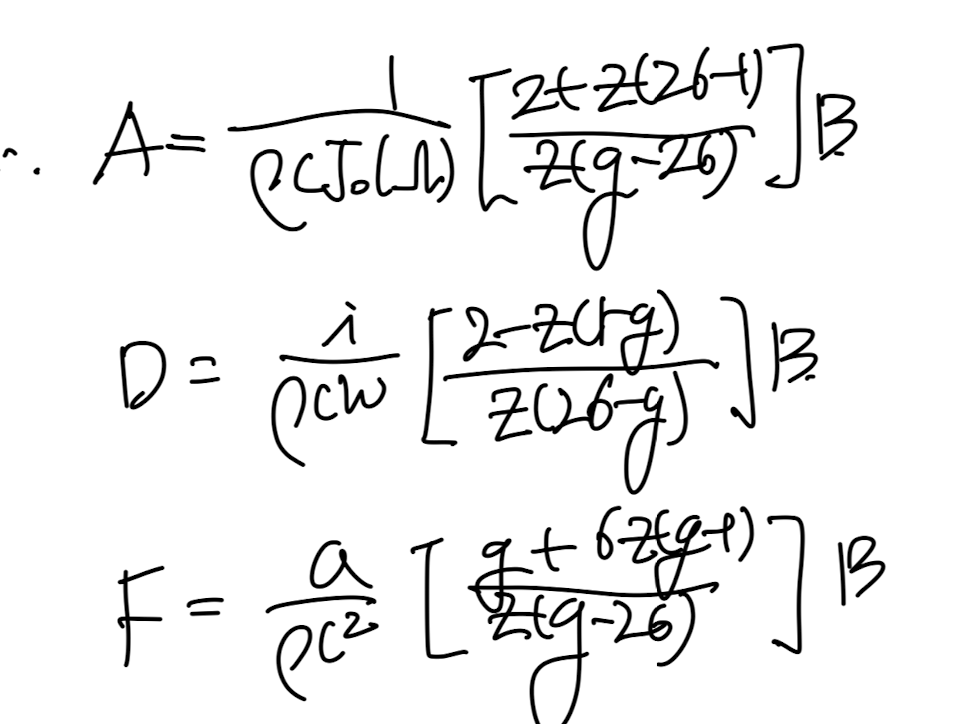 ∴ A = \frac{1}{ρcJ₀(Λ)} [\frac{2+z(2σ-1)}{z(g-2σ)}] B
D = \frac{i}{ρcω} [\frac{2-z(1-g)}{z(2σ-g)}] B
F = \frac{a}{ρc²} [\frac{g+σz(g-1)}{z(g-2σ)}] B